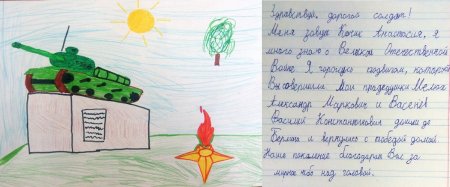 Здравствуй, дорогой солдат!
Меня зовут Анастасия, я
много знаю о Великой Отечественной
Войне. Я горжусь подвигом, который
Вы совершили. Мои прадедушки
Александр Маркович и
Василий Константинович дошли до
Берлина и вернулись с победой домой.
Наше поколение благодарит Вас за
мирное небо над головой.